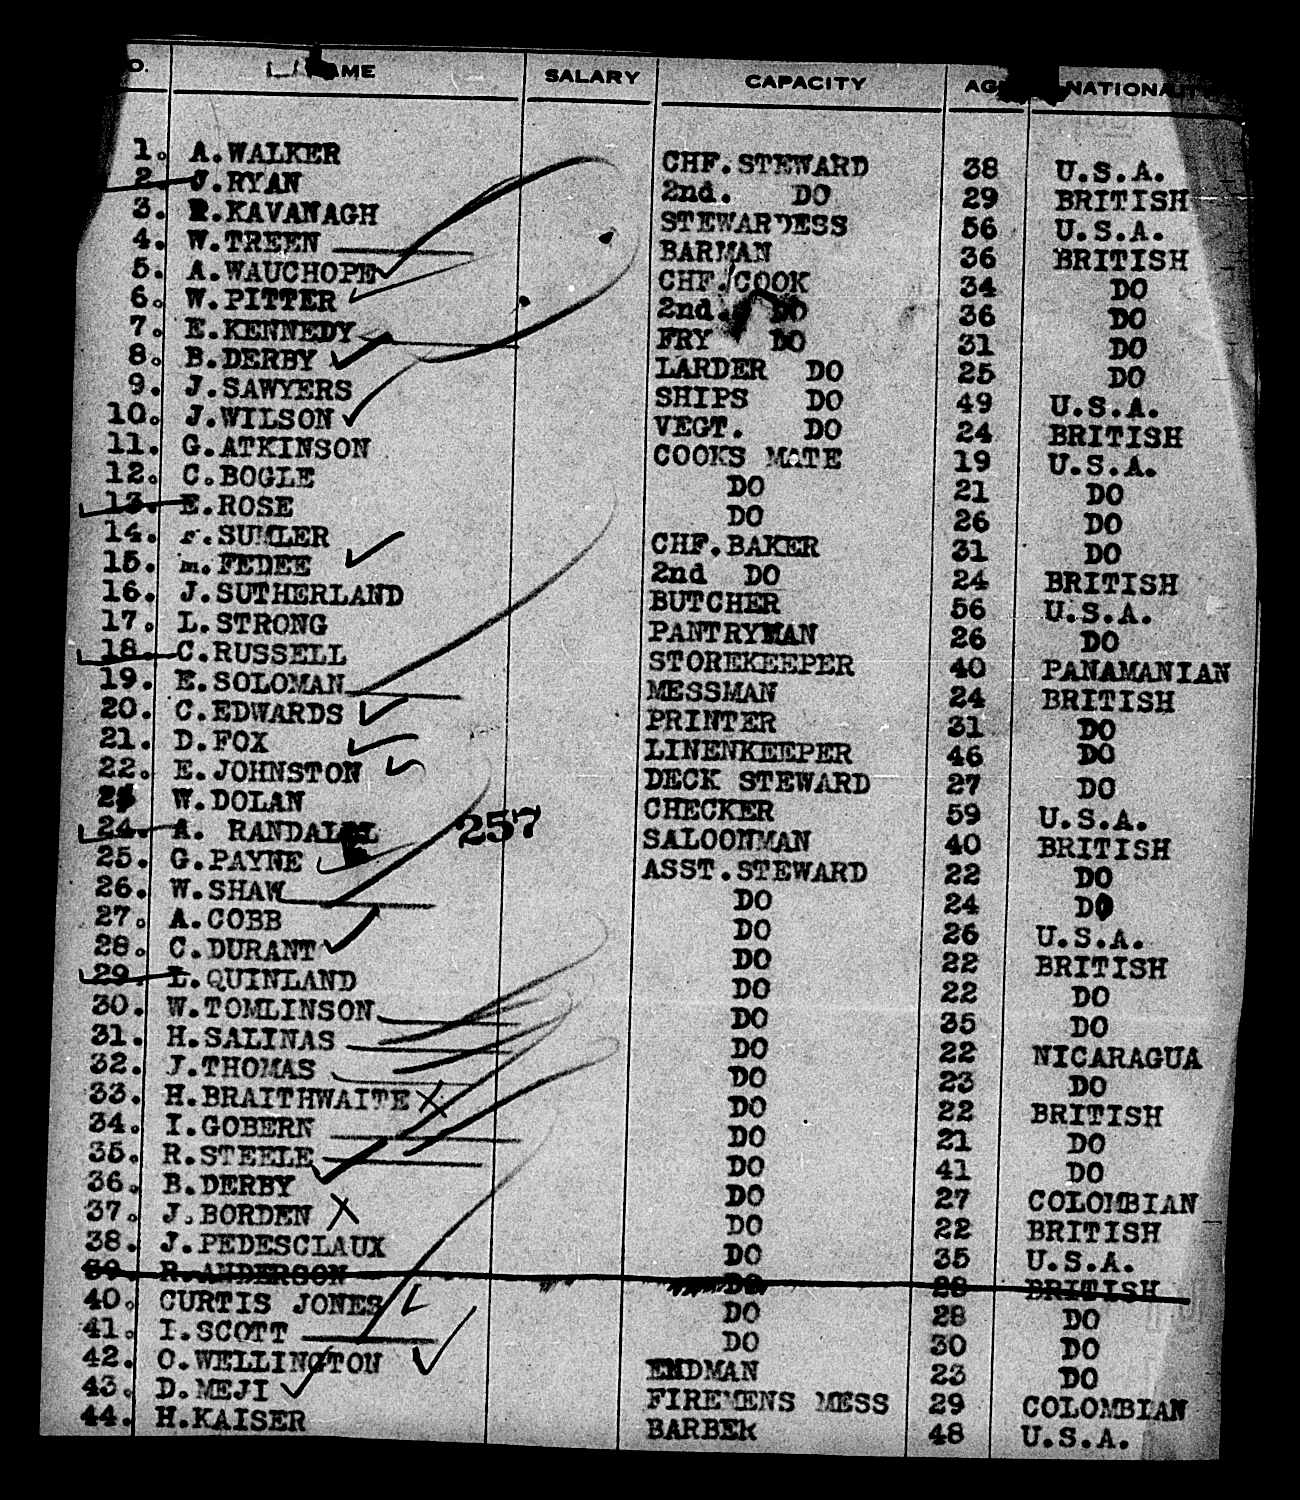 NAME SALARY CAPACITY AGE
1. A.WALKER CHF.STEWARD 38 U.S.A.
2. J.RYAN 2nd. DO 29 BRITISH
3. R.KAVANAGH STEWARDESS 56 U.S.A.
4. W.TREEN BARMAN 36 BRITISH
5. A.WAUCHOPE CHF.COOK 34 DO
6. W.PITTER 2nd. DO 36 DO
7. E.KENNEDY FRY DO 31 DO
8. B.DERBY LARDER DO 25 DO
9. J.SAWYERS SHIPS DO 49 U.S.A.
10. J.WILSON VEGT. DO 24 BRITISH
11. G.ATKINSON COOKS MATE 19 U.S.A.
12. C.BOGLE DO 21 DO
13. E.ROSE DO 26 DO
14. SUMLER CHF.BAKER 31 DO
15. m.FEDEE 2nd DO 24 BRITISH
16. J.SUTHERLAND BUTCHER 56 U.S.A.
17. L.STRONG PANTRYMAN 26 DO
18. C.RUSSELL STOREKEEPER 40 PANAMANIAN
19. E.SOLOMAN MESSMAN 24 BRITISH
20. C.EDWARDS PRINTER 31 DO
21. D.FOX LINENKEEPER 46 DO
22. E.JOHNSTON DECK STEWARD 27 DO
W.DOLAN CHECKER 59 U.S.A.
24. A. RANDALL 257 SALOONMAN 40 BRITISH
25. G.PAYNE ASST.STEWARD 22 DO
26. W.SHAW DO 24 DO
27. A.COBB DO 26 U.S.A.
28. C.DURANT DO 22 BRITISH
29. L.QUINLAND DO 22 DO
30. W.TOMLINSON DO 35 DO
31. H.SALINAS DO 22 NICARAGUA
32. J.THOMAS DO 23 DO
33. H.BRAITHWAITE DO 22 BRITISH
34. I.GOBERN DO 21 DO
35. R.STEELE DO 41 DO
36. B.DERBY DO 27 COLOMBIAN
37. J.BORDEN DO 22 BRITISH
38. J.PEDESCLAUX DO 35 U.S.A.
39. R.ANDERSON DO 28 BRITISH
40. CURTIS JONES DO 28 DO
41. I.SCOTT DO 30 DO
42. O.WELLINGTON ENDMAN 23 DO
43. D.MEJI FIREMENS MESS 29 COLOMBIAN
44. H.KAISER BARBER 48 U.S.A.